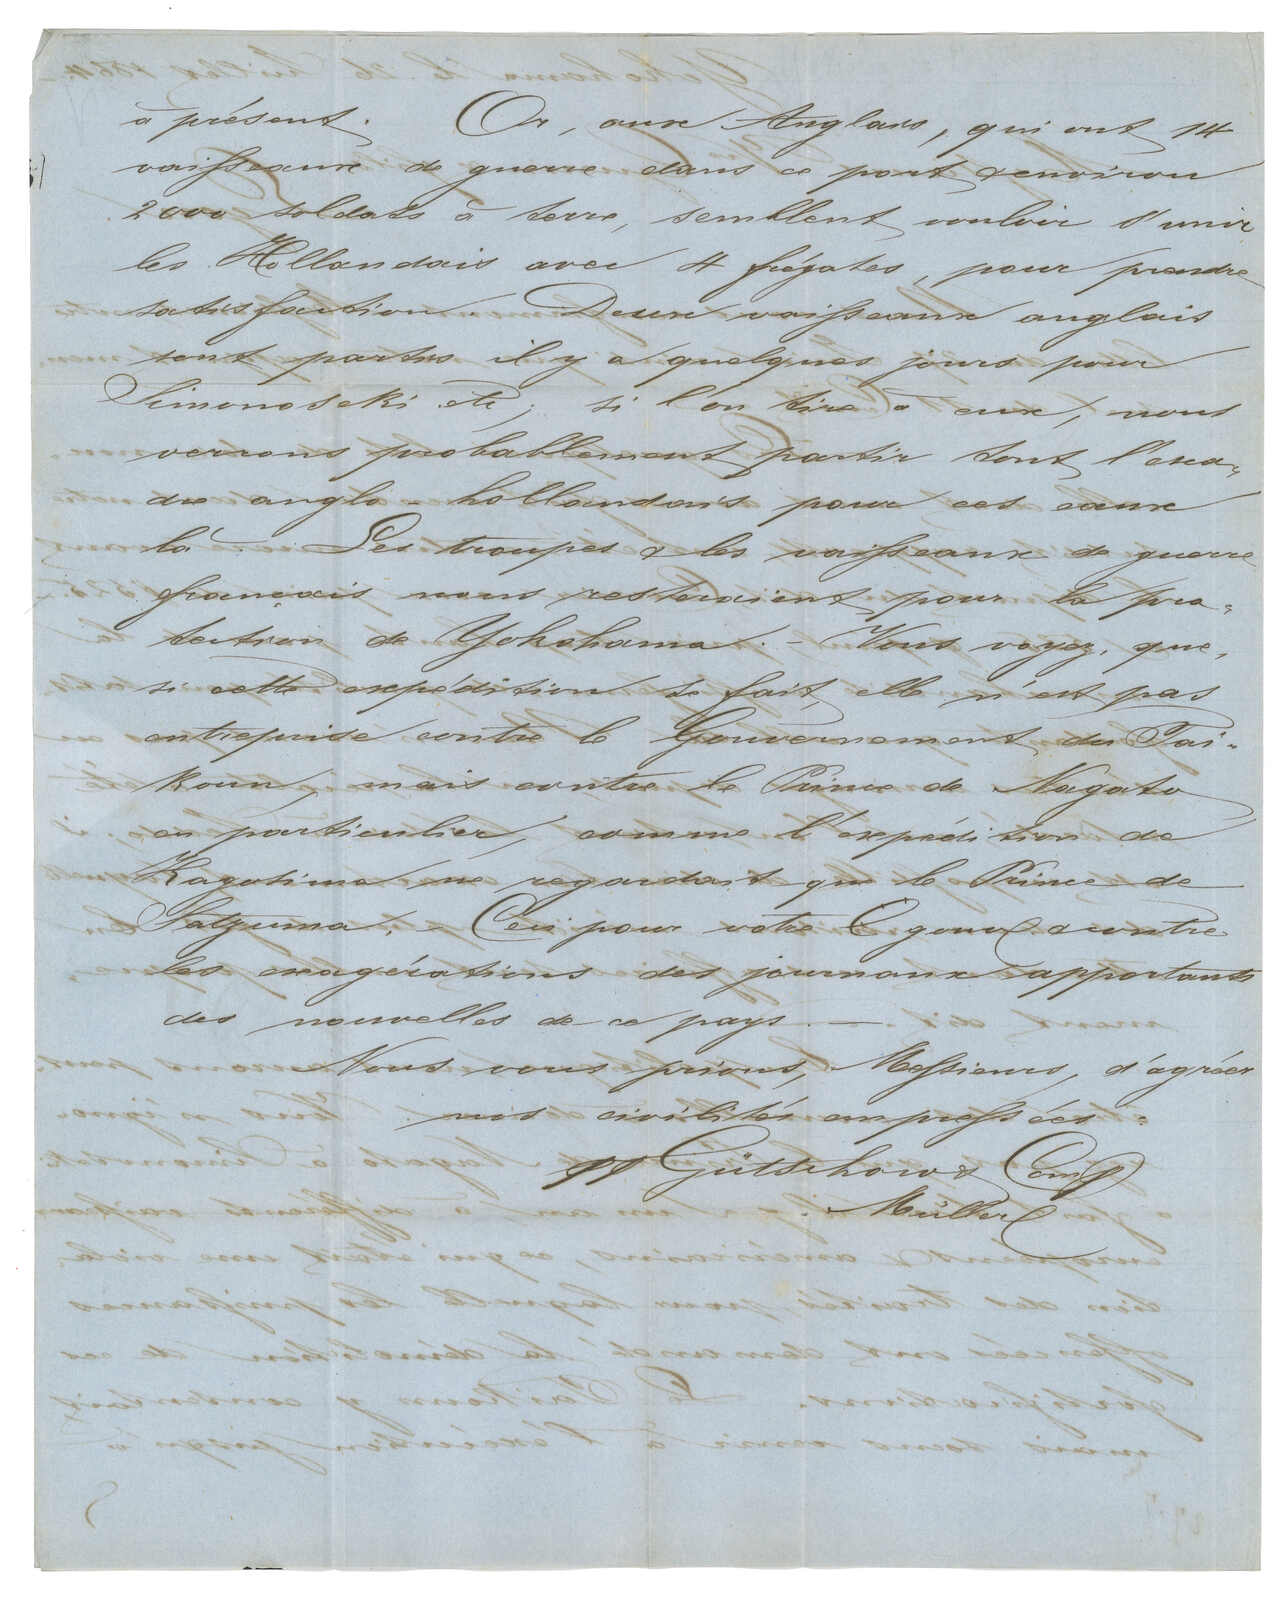 à présent. Or, aux Anglais, qui ont 14
vaisseaux de guerre dans ce port & environ
2000 soldats à terre, semblent vouloir s'unir
les Hollandais avec 4 frégates, pour prendre
satisfaction. Deux vaisseaux anglais
sont partis il y a quelques jours pour
Simonoseki etc; si l'on tire à eux, nous
verrons probablement partir tout l'esca-
dre anglo-hollandais pour ces eaux
là. Les troupes & les vaisseaux de guerre
français nous resteraient pour la pro-
tection de Yokohama. - Vous voyez, que,
si cette expédition se fait, elle n'est pas
entreprise contre le Gouvernement du Tai-
koun, mais contre le Prince de Nagato
en particulier, comme l'expédition de
Kagosima ne regardait que le Prince de
Satzuma. - Ceci pour votre & contre
les exagérations des journaux apportants
des nouvelles de ce pays. —
Nous vous prions, Messieurs, d'agréer
nos civilités empressées.
pp Gütschow & Comp
Müller